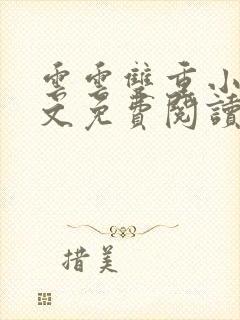 雲雲雙重小
文免費閱讀
措美